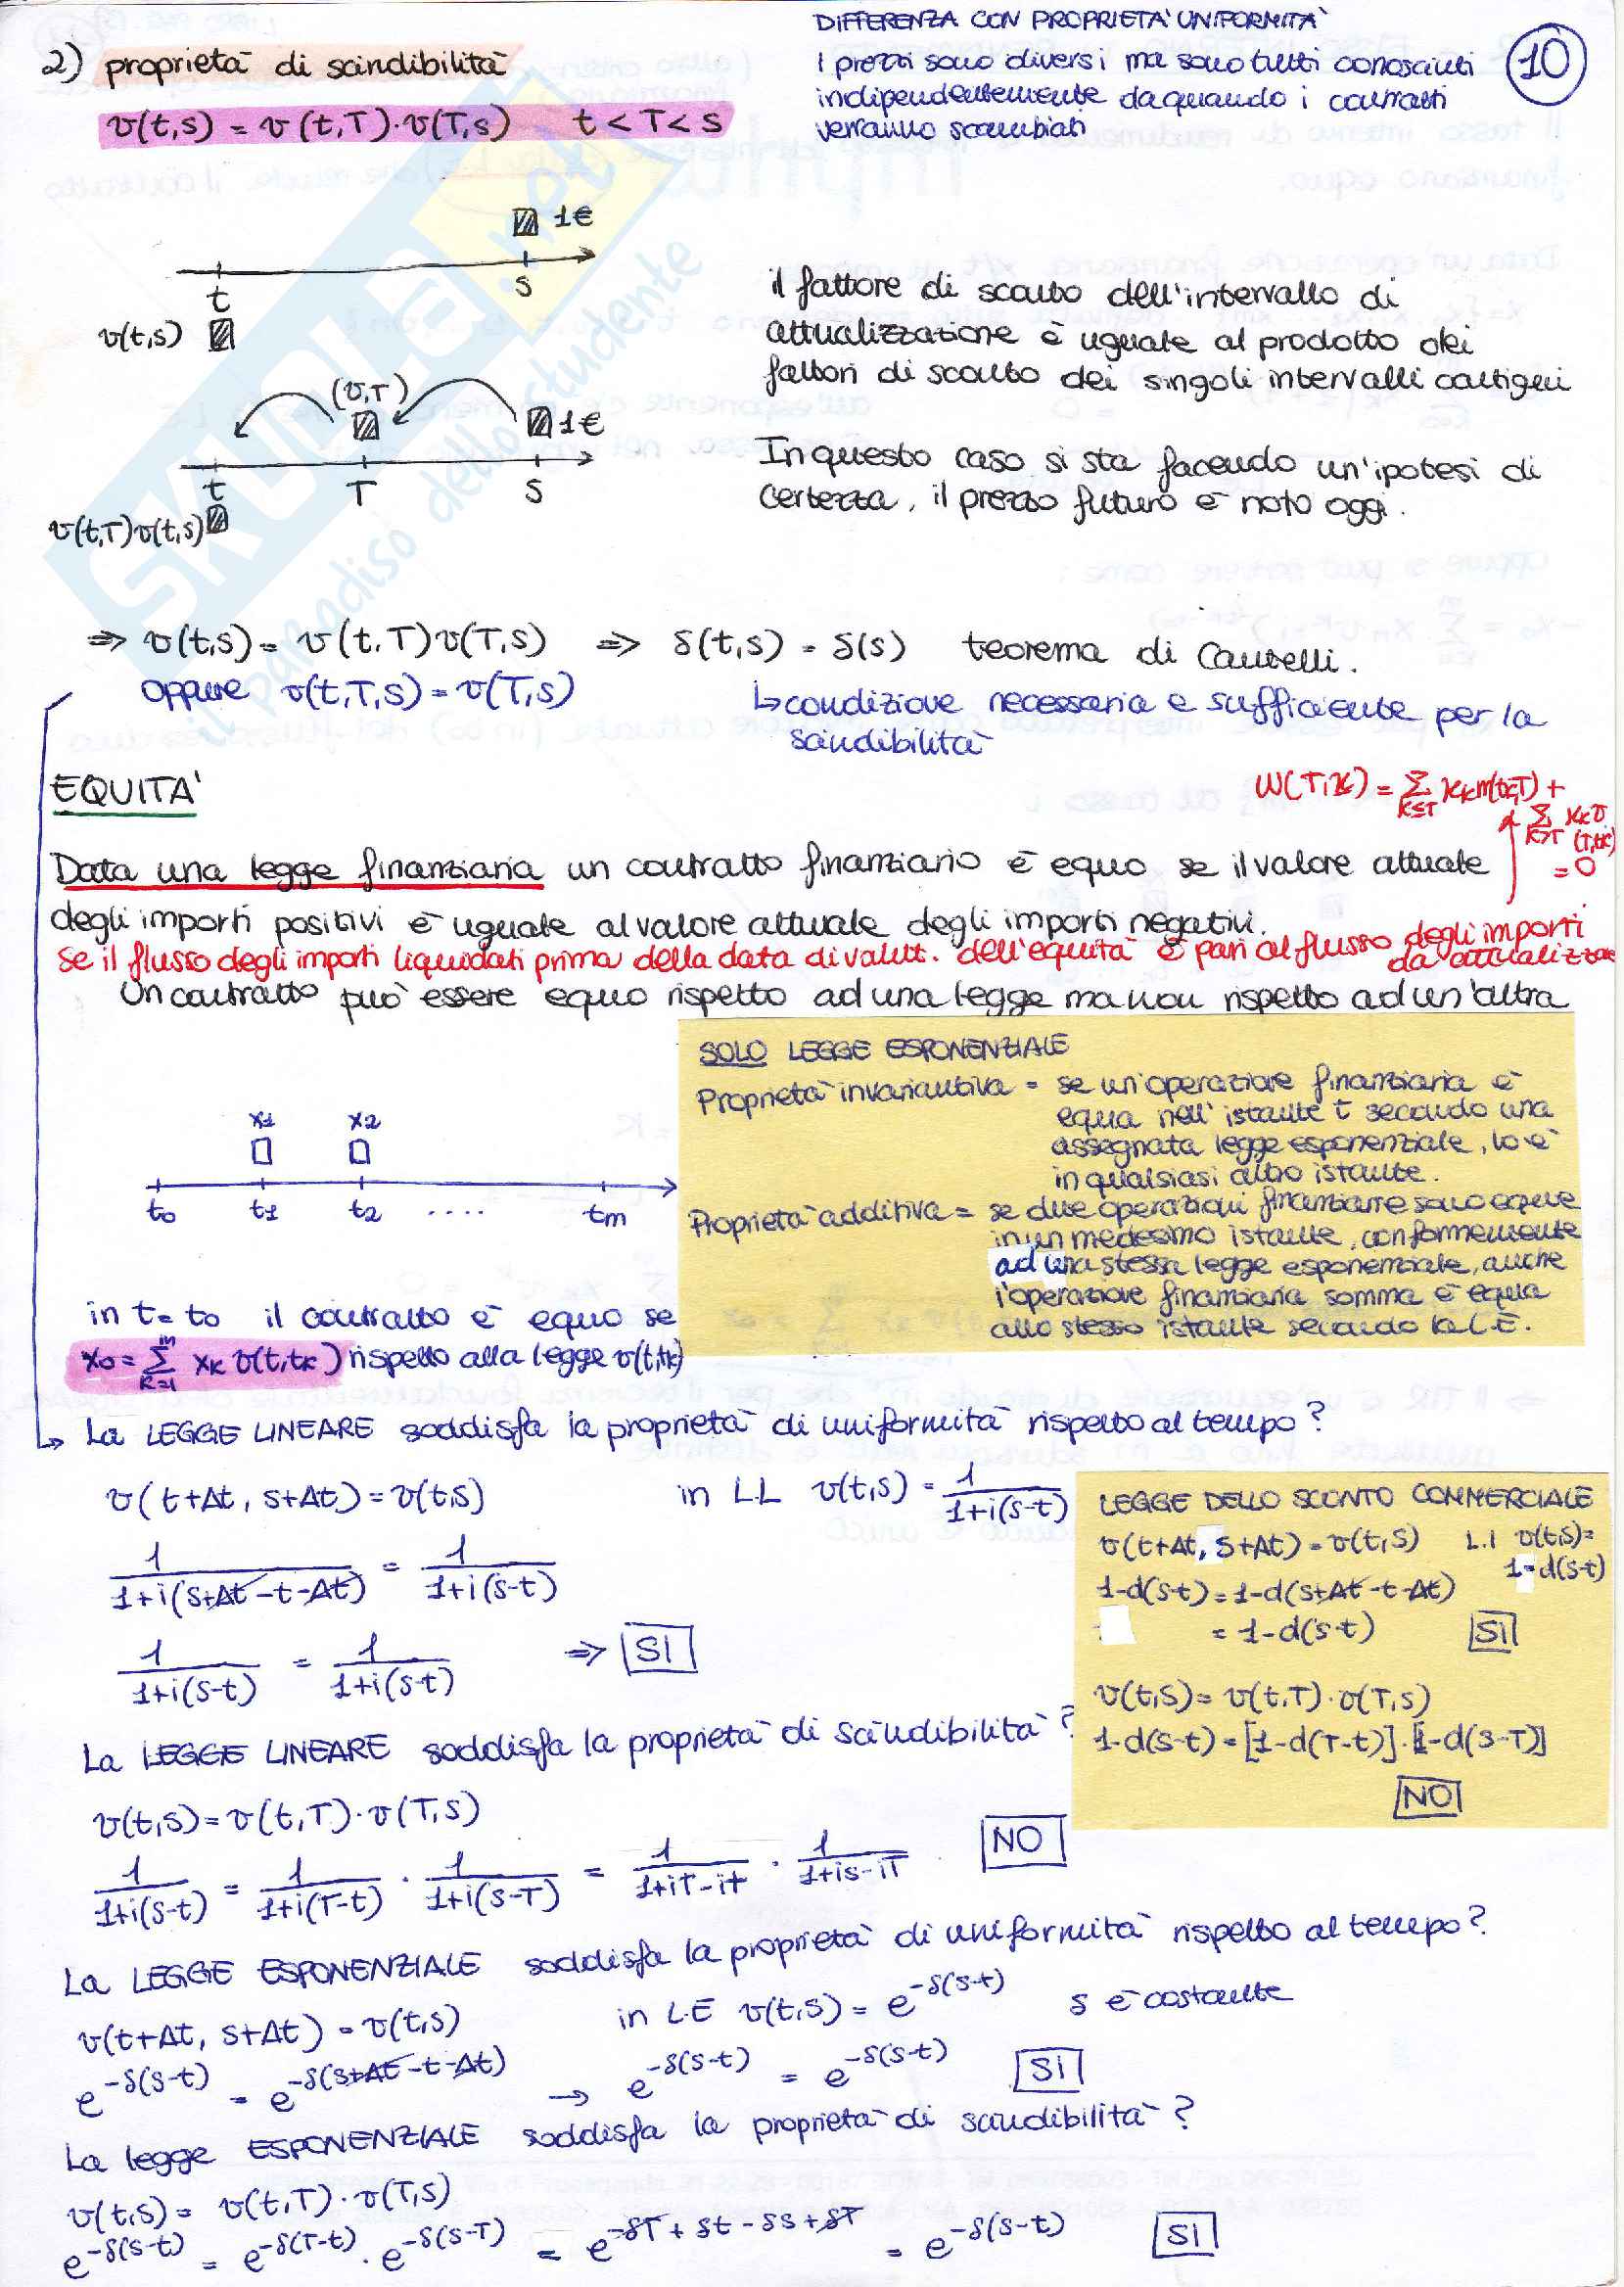 DIFFERENZA CON PROPRIETA' UNIFORMITA'
2) proprietà di scindibilità
I prezzi sono diversi ma sono tutti conosciuti
10
v(t,s) = v(t,T)·v(T,s) t < T < s
indipendentemente da quando i contratti
verranno scambiati
1€
t s
v(t,s)
il fattore di sconto dell'intervallo di
attualizzazione è uguale al prodotto dei
fattori di sconto dei singoli intervalli contigui
(v,T)
1€
t T s
v(t,T)v(t,s)
In questo caso si sta facendo un'ipotesi di
certezza, il prezzo futuro è noto oggi.
SKUOLA.net
il paradiso dello studente
⇒ v(t,s) = v(t,T)v(T,s) ⇒ δ(t,s) = δ(s) teorema di Cantelli.
oppure v(t,T,s) = v(T,s) ↳ condizione necessaria e sufficiente per la
scindibilità
EQUITA'
W(T,x) = Σ k≤T xk m(tk,T) +
Σ k>T xk v (T,tk)
= 0
Data una legge finanziaria un contratto finanziario è equo se il valore attuale
degli importi positivi è uguale al valore attuale degli importi negativi.
se il flusso degli importi liquidati prima della data di valut. dell'equità è pari al flusso degli importi
da attualizzare
Un contratto può essere equo rispetto ad una legge ma non rispetto ad un'altra
SOLO LEGGE ESPONENZIALE
Proprietà invariantiva = se un'operazione finanziaria è
equa nell'istante t secondo una
assegnata legge esponenziale, lo è
in qualsiasi altro istante.
Proprietà additiva = se due operazioni finanziarie sono eque
in un medesimo istante, conformemente
ad una stessa legge esponenziale, anche
l'operazione finanziaria somma è equa
allo stesso istante secondo la L.E.
x1 x2
t0 t1 t2 .... tm
in t = t0 il contratto è equo se
x0 = Σ k=1 m xk v(t,tk) rispetto alla legge v(t,tk)
↳ La LEGGE LINEARE soddisfa la proprietà di uniformità rispetto al tempo?
v(t+Δt, s+Δt) = v(t,s) in L.L v(t,s) = 1/(1+i(s-t))
1/(1+i(s+Δt-t-Δt)) = 1/(1+i(s-t))
1/(1+i(s-t)) = 1/(1+i(s-t)) ⇒ SI
LEGGE DELLO SCONTO COMMERCIALE
v(t+Δt, s+Δt) = v(t,s) L.I v(t,s) =
1-d(s-t)
1-d(s-t) = 1-d(s+Δt-t-Δt)
= 1-d(s-t) SI
v(t,s) = v(t,T)·v(T,s)
1-d(s-t) = [1-d(T-t)]·[1-d(s-T)]
NO
La LEGGE LINEARE soddisfa la proprietà di scindibilità?
v(t,s) = v(t,T)·v(T,s)
1/(1+i(s-t)) = 1/(1+i(T-t)) · 1/(1+i(s-T)) = 1/(1+iT-it) · 1/(1+is-iT) NO
La LEGGE ESPONENZIALE soddisfa la proprietà di uniformità rispetto al tempo?
v(t+Δt, s+Δt) = v(t,s) in L.E v(t,s) = e^-δ(s-t) δ è costante
e^-δ(s-t) = e^-δ(s+Δt-t-Δt) → e^-δ(s-t) = e^-δ(s-t) SI
La legge ESPONENZIALE soddisfa la proprietà di scindibilità?
v(t,s) = v(t,T)·v(T,s)
e^-δ(s-t) = e^-δ(T-t) · e^-δ(s-T) = e^-δT+δt-δs+δT = e^-δ(s-t) SI